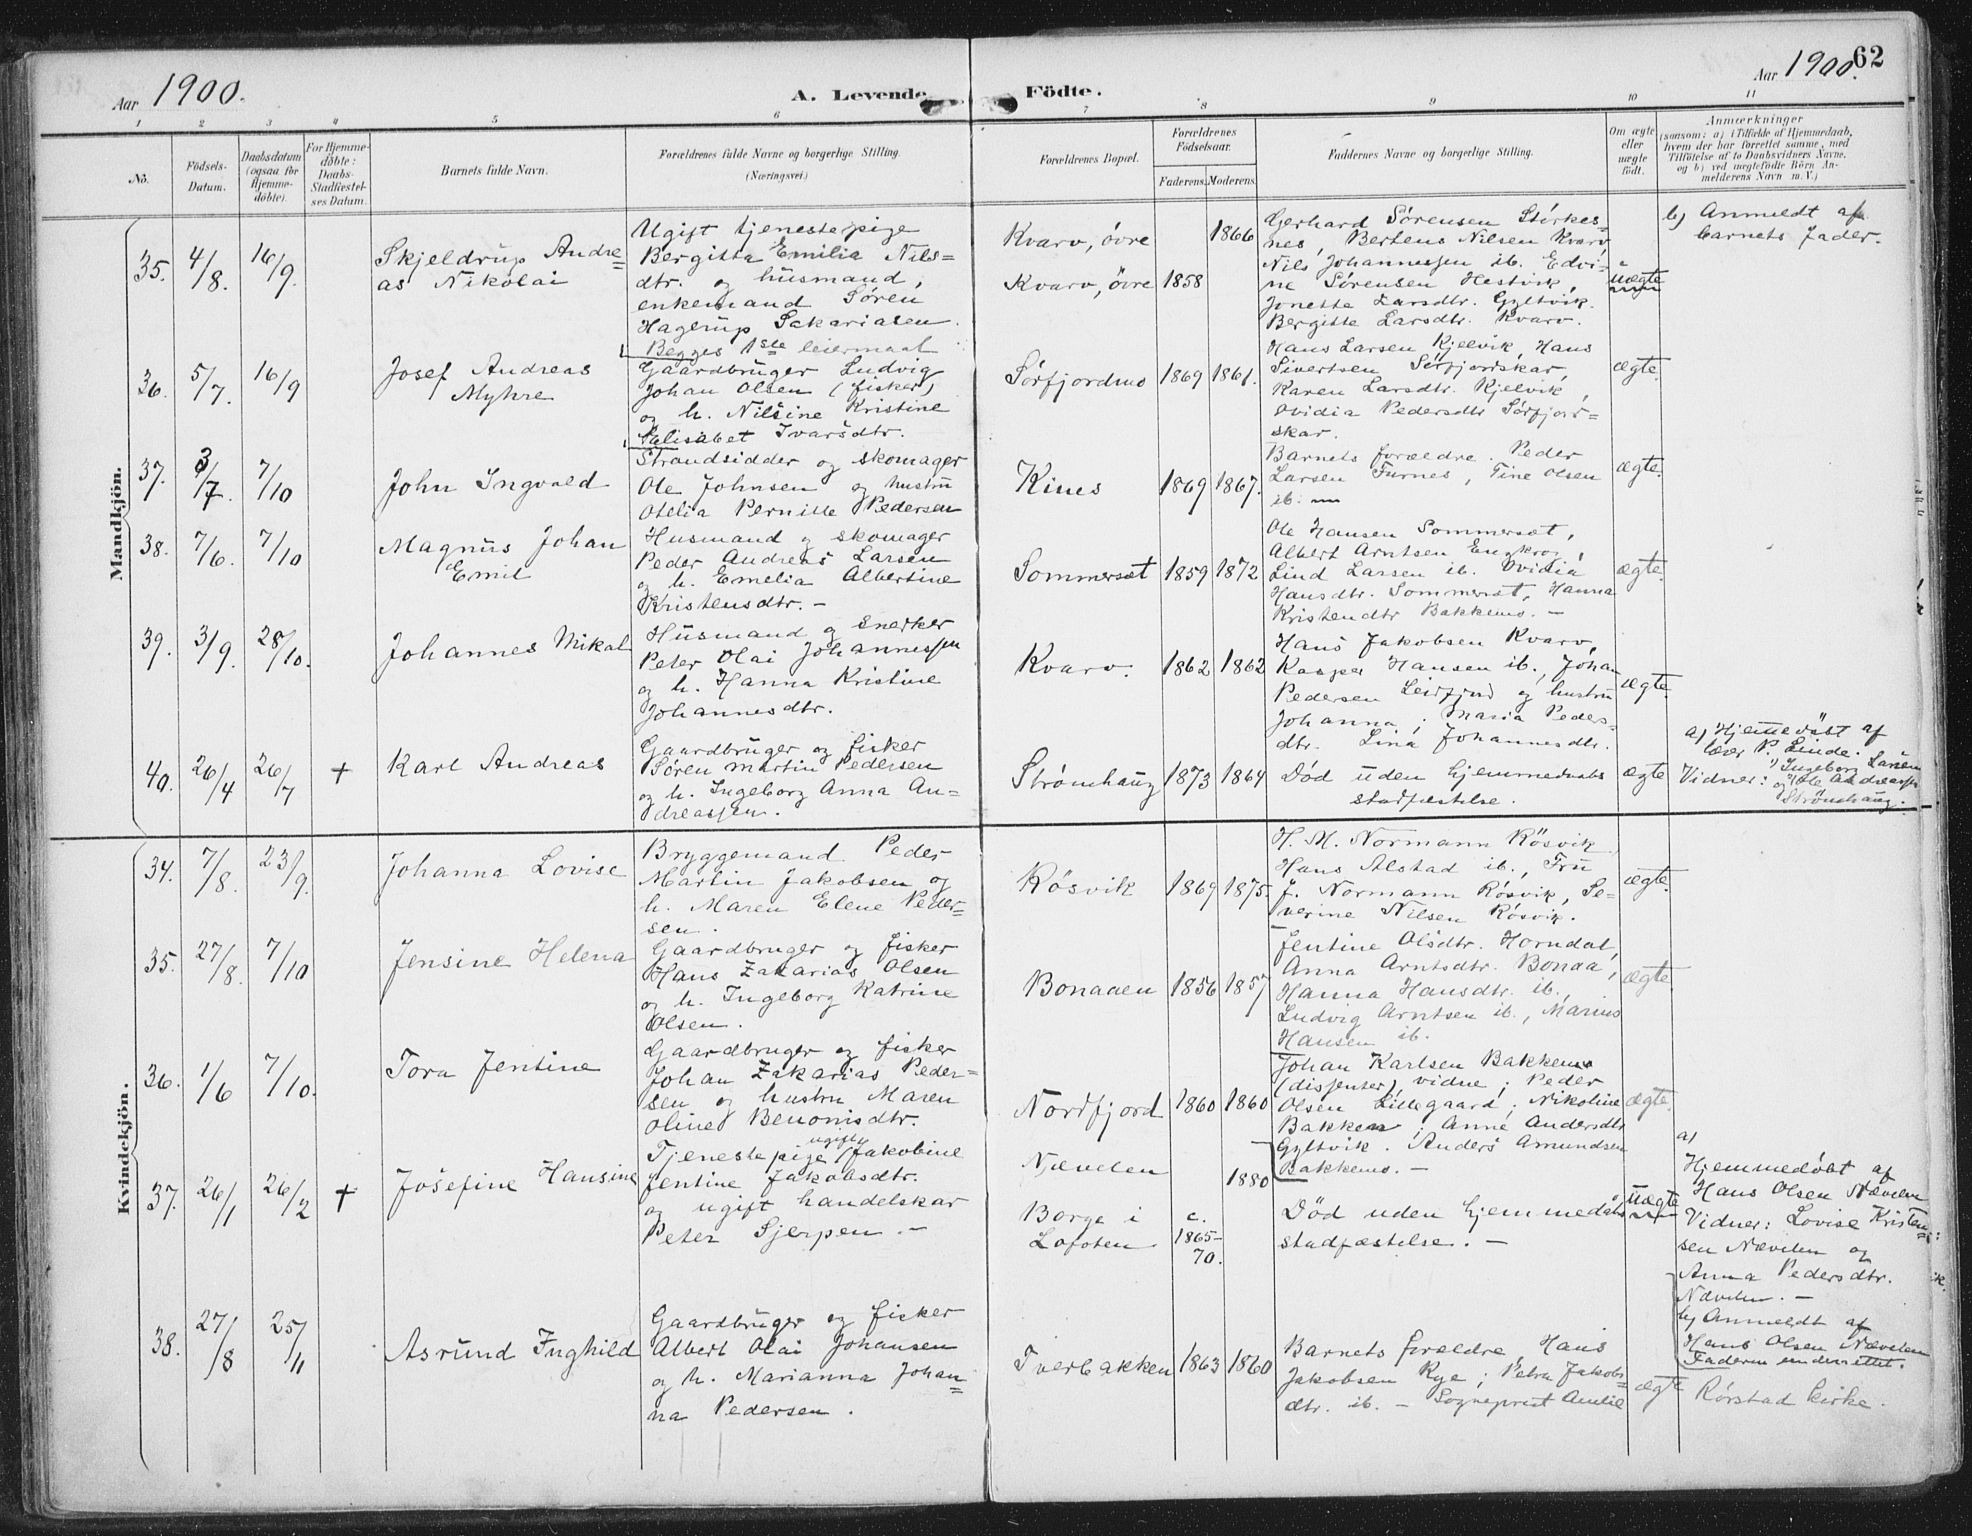 Aar 1900. A. Levende Födte. Aar 1900. 62
1 2 3 4 5 6 7 8 9 10 11
No.
Födsels-Datum.
Daabsdatum (ogsaa for Hjemme-döbte).
For Hjemme-döbte: Daabs-Stadfæstel-ses Datum.
Barnets fulde Navn.
Forældrenes fulde Navne og borgerlige Stilling. (Næringsvei.)
Forældrenes Bopæl.
Forældrenes Födselsaar.
Faderens. Moderens.
Faddernes Navne og borgerlige Stilling.
Om ægte eller uægte født.
Anmærkninger
(saasom: a) i Tilfælde af Hjemmedaab,
hvem der har forrettet samme, med
Tilföielse af to Daabsvidners Navne,
og b) ved uægtefödte Börn An-
melderens Navn m. V.)
Mandkjön.
35. 4/8. 16/9. Skjeldrup Andre=
as Nikolai
Ugift tjenestepige
Bergitta Emilia Nils=
dtr. og husmand,
enkemand Sören
Hagerup Sakariasen.
Begges 1ste leiermaal
Kvarv, øvre 1866
Kvarv, övre 1858
Gerhard Sørensen Storkes=
nes, Bertens Nilsen Kvarv
Nils Johannessen ib. Edvi=
ne Sørensen Hestvik,
Jonette Larsdtr. Gyltvik.
Bergitte Larsdtr. Kvarv.
uægte
b) Anmeldt af
barnets fader.
36. 5/7. 16/9 Josef Andreas
Myhre
Gaardbruger Ludvig
Johan Olsen (fisker)
og h. Nilsine Kristine
Palisabet Ivarsdtr.
Sørfjordmo 1869 1861.
Hans Larsen Kjelvik, Hans
Sivertsen Sørfjordskar,
Karen Larsdtr. Kjelvik,
Ovidia Pedersdtr Sørfjord=
skar.
ægte.
37. 3/7. 7/10 John Ingvald
Strandsidder og skomager
Ole Johnsen og hustru
Otelia Pernille Pedersen
Kines 1869 1867.
Barnets forældre. Peder
Larsen Furnes, Tine Olsen
ib.
ægte.
38. 7/6. 7/10 Magnus Johan
Emil
Husmand og skomager
Peder Andreas Larsen
og h. Emelia Albertine
Kristensdtr. -
Sommerset 1859 1872
Ole Hansen Sommerset,
Albert Arntsen Engkrog,
Lind Larsen ib. Ovidia
Hansdtr. Sommerset, Hanna
Kristendtr Bakkemo. -
ægte.
39. 3/9. 28/10. Johannes Mikal
Husmand og snerker
Peter Olai Johannessen
og h. Hanna Kristine
Johannesdtr.
Kvarv. 1862 1862
Hans Jakobsen Kvarv,
Kasper Hansen ib., Johan
Pedersen Leirfjord og hustru
Johanna; Maria Peders=
dtr. Lina Johannesdtr.
ægte.
40. 26/4 26/7 + Karl Andreas
Gaardbruger og fisker
Søren Martin Pedersen
og h. Ingeborg Anna An=
dreassen.
Strømhaug 1873 1864
Død uden hjemmedaabs
stadfæstelse.
ægte
a) Hjemmedöbt af
lærer P. Linde.
Vidner: 1) Ingeborg Larsen
og 2) Ole Andreassen
Strömhaug.
Kvindekjön.
34. 7/8. 23/9. Johanna Lovise
Bryggemand Peder
Martin Jakobsen og
h. Maren Elene Peder=
sen.
Røsvik 1869 1875.
H. M. Normann Rösvik,
Hans Alstad ib., Fru
J. Normann Røsvik, Se=
verine Nilsen Røsvik.
ægte.
35. 27/8. 7/10 Jensine Helena
Gaardbruger og fisker
Hans Zakarias Olsen
og h. Ingeborg Katrine
Olsen.
Bonaaen 1856 1857
Jentine Olsdtr. Horndal,
Anna Arntsdtr. Bonaa,
Hanna Hansdtr. ib.
Ludvig Arntsen ib., Marius
Hansen ib.
ægte
36. 1/6 7/10. Tora Jentine
Gaardbruger og fisker
Johan Zakarias Peder=
sen og hustru Maren
Oline Benonisdtr.
Nordfjord 1860 1860
Johan Karlsen Bakkemo
(dispenser), vidne; Peder
Olsen Lillegaard; Nikoline
Bakken; Anne Andersdtr
Gyltvik. Anders Amundsen
Bakkemo. -
ægte.
37. 26/1 26/2 + Josefine Hansine
Tjenestepige ugifte Jakobine
Jentine Jakobsdtr.
og ugift handelskar
Peter Sjerpen. -
Nævelen 1880
Borge i
Lofoten
c.
1865-
70.
Død uden hjemmedaabs
stadfæstelse. -
uægte
a)
Hjemmedöbt af
Hans Olsen Nævelen
Vidner: Lovise Kristen=
sen Nævelen og
Anna Pedersdtr.
Nævelen. -
b) Anmeldt af
Hans Olsen Nævelen
Faderen underrettet.
38. 27/8 25/11 Asrund Inghild
Gaardbruger og fisker
Albert Olai Johansen
og h. Marianna Johan=
na Pedersen.
Tverbakken 1863 1860
Barnets forældre, Hans
Jakobsen Rye; Petra Jakobs=
dtr. ib. - Sogneprest Amlie
ægte
Rørstad kirke.